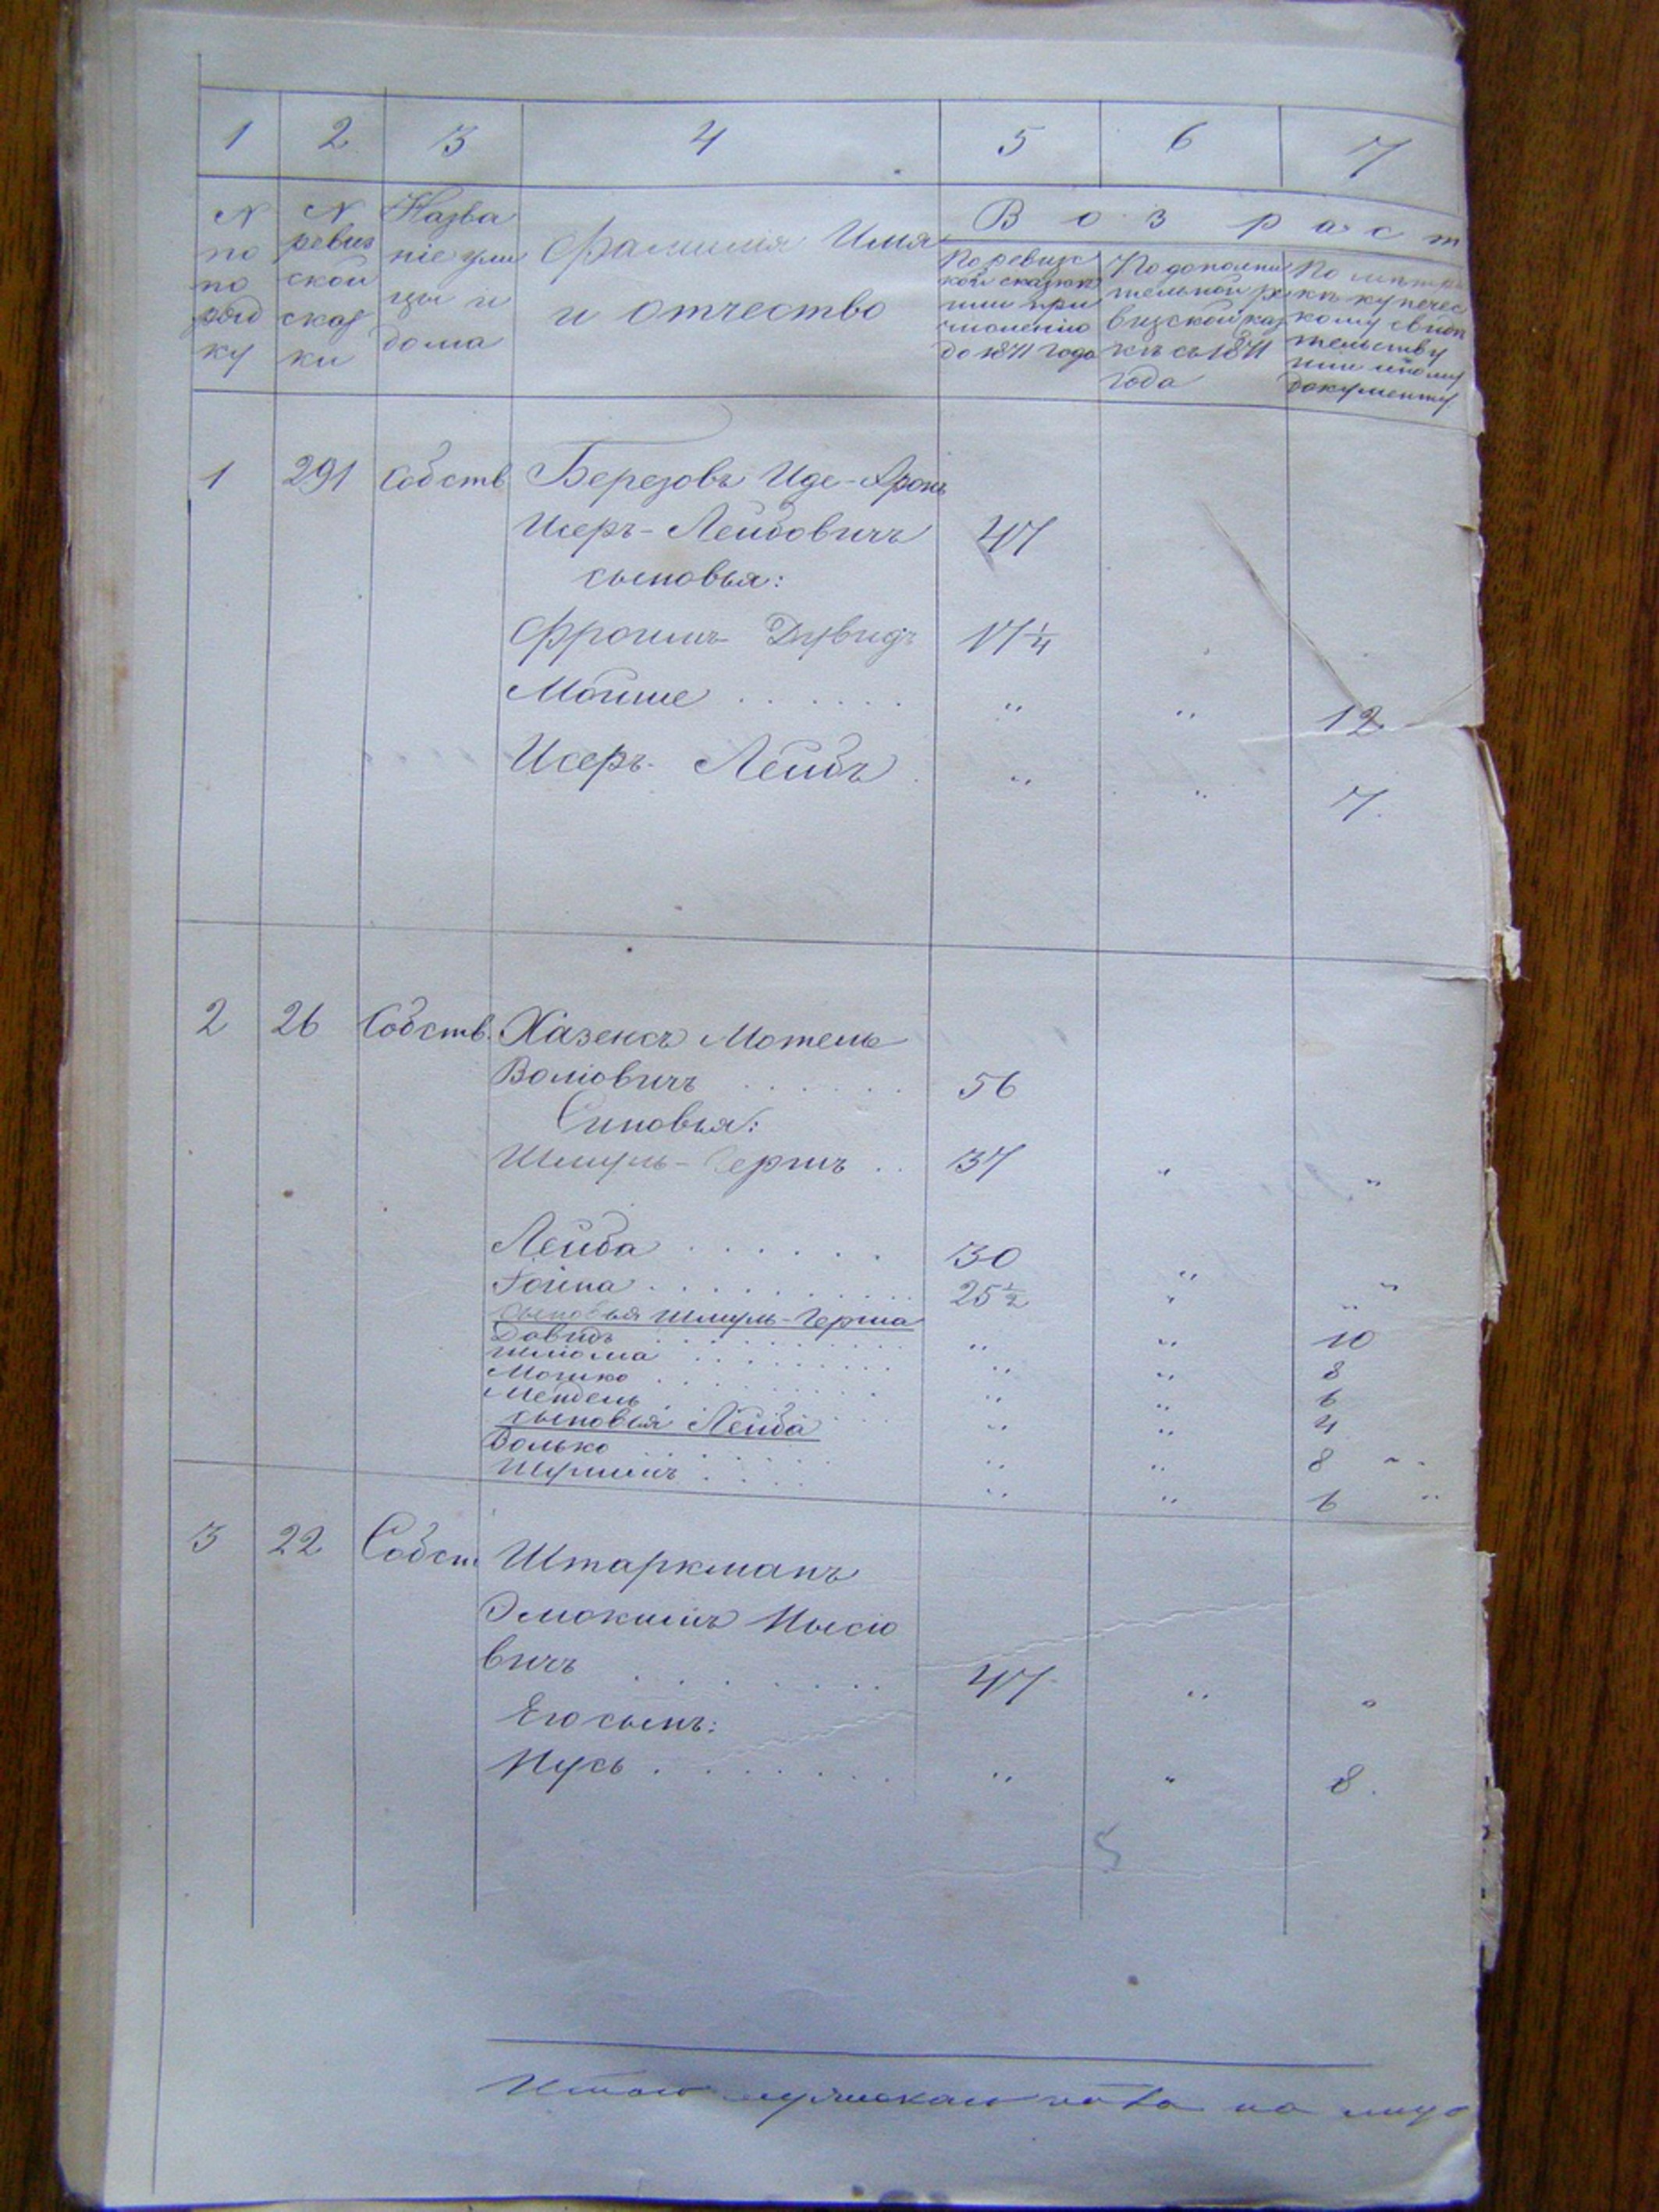 1 2 3 4 5 6 7
N по по ряд ку
N ревиз ской сказ ки
Назва ніе ули цы и дома
Фамилія Имя
и отчество
Возраст
По ревиз кой сказкѣ или при числению до 1871 года
По дополни тельной ре визской каз кѣ съ 1871 года
По метри кѣ купечес кому свидѣ тельству или иному документу
1 291 Собств Березовъ Иде-Аронъ
Исеръ-Лейбовичъ 47
сыновья:
Фроимъ Дувидъ 17 1/4
Мойше . . . . . . " " 12
Исеръ-Лейбъ . " " 7.
2 26 Собств. Хазенсъ Мотель
Волювичъ . . . . . . 56
Сыновья:
Шмуль-Гершъ . . 37 " "
Лейба . . . . . . 30 " "
Гойна . . . . . . . . . 25 1/2 " "
сыновья Шмуль-Герша
Давидъ . . . . . . . . " " 10
Шлиома . . . . . . . . " " 8
Мошко . . . . . . . " " 6
Мендель . . . . . . " " 4
сыновья Лейба
Волько . . . . . " " 8 "
Шулимъ . . . . " " 6 "
3 22 Собст Штаркманъ
Элиокимъ Нысіо
вичъ . . . . . . . 47 " "
Его сынъ:
Нусь . . . . . . . " " 8.
5
Итого мужскаго пола на лицо